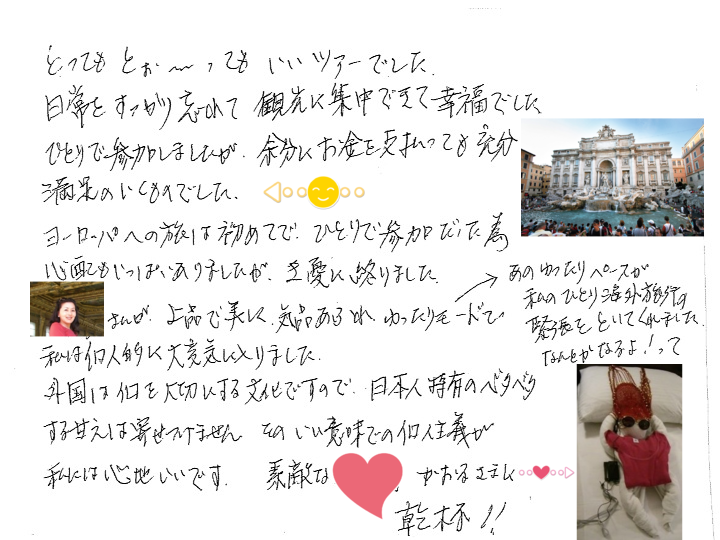 とっても とぉ〜〜っても いいツアーでした.
日常をすっかり忘れて 観光に集中できて幸福でした
ひとりで参加しましたが、余分にお金を支払っても充分
満足のいくものでした.
ヨーロッパへの旅は初めてで、ひとりで参加だった為
心配でいっぱいありましたが、杞憂に終りました.
さんが、上品で美しく、気品あふれ、ゆったりモードで
私は個人的に大変気に入りました.
→ あのゆったりペースが
私のひとり海外旅行の
緊張をといてくれました.
なんとかなるよ!って
外国は個を大切にする文化ですので、日本人特有のベタベタ
する甘えは寄せつけません そのいい意味での個人主義が
私には心地いいです. 素敵な かおるさまに
乾杯!!